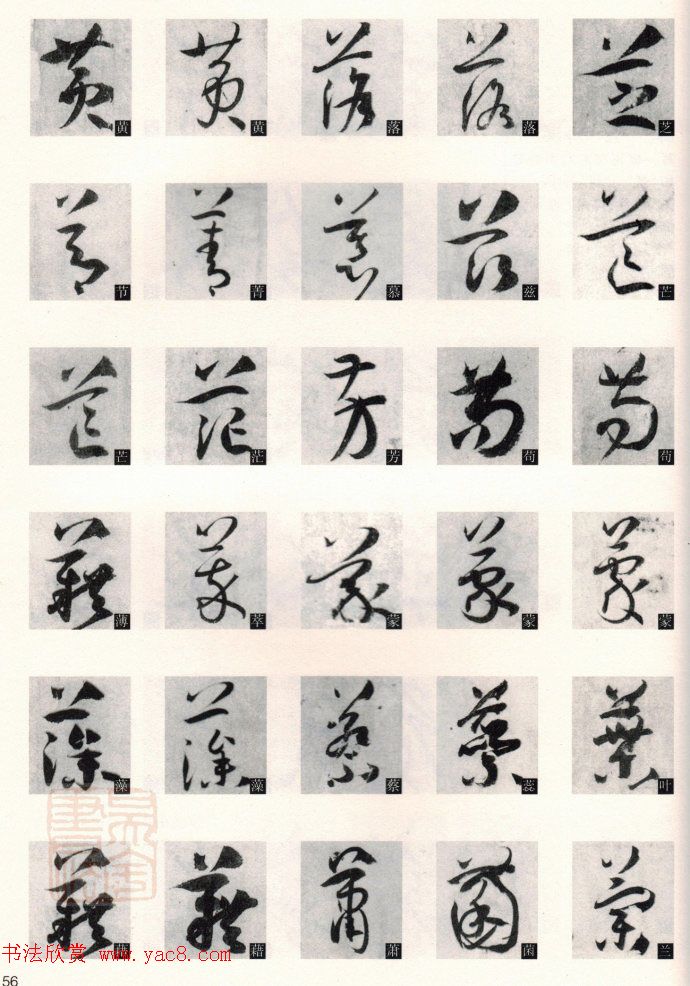 黄 黄 落 落 芝
节 菁 慕 兹 芒
芒 茫 芳 苟 苟
薄 萃 蒙 蒙 蒙
藻 藻 蔡 蕊 叶
藉 萧 菌 兰
书法欣赏 www.yac8.com
56